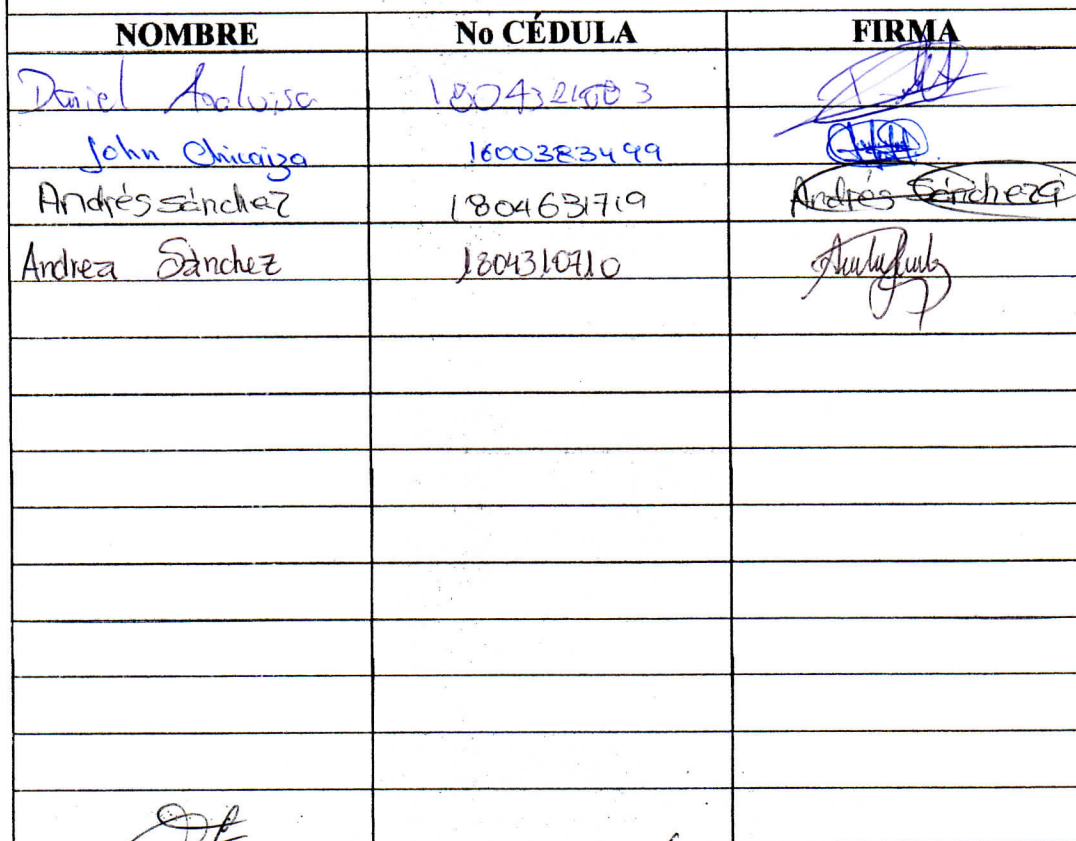 NOMBRE No CÉDULA FIRMA
Daniel Analuisa
John Chicaiza 1600383499
Andrés Sánchez 1804631719 Andrés Sánchez
Andrea Sánchez 1804310710